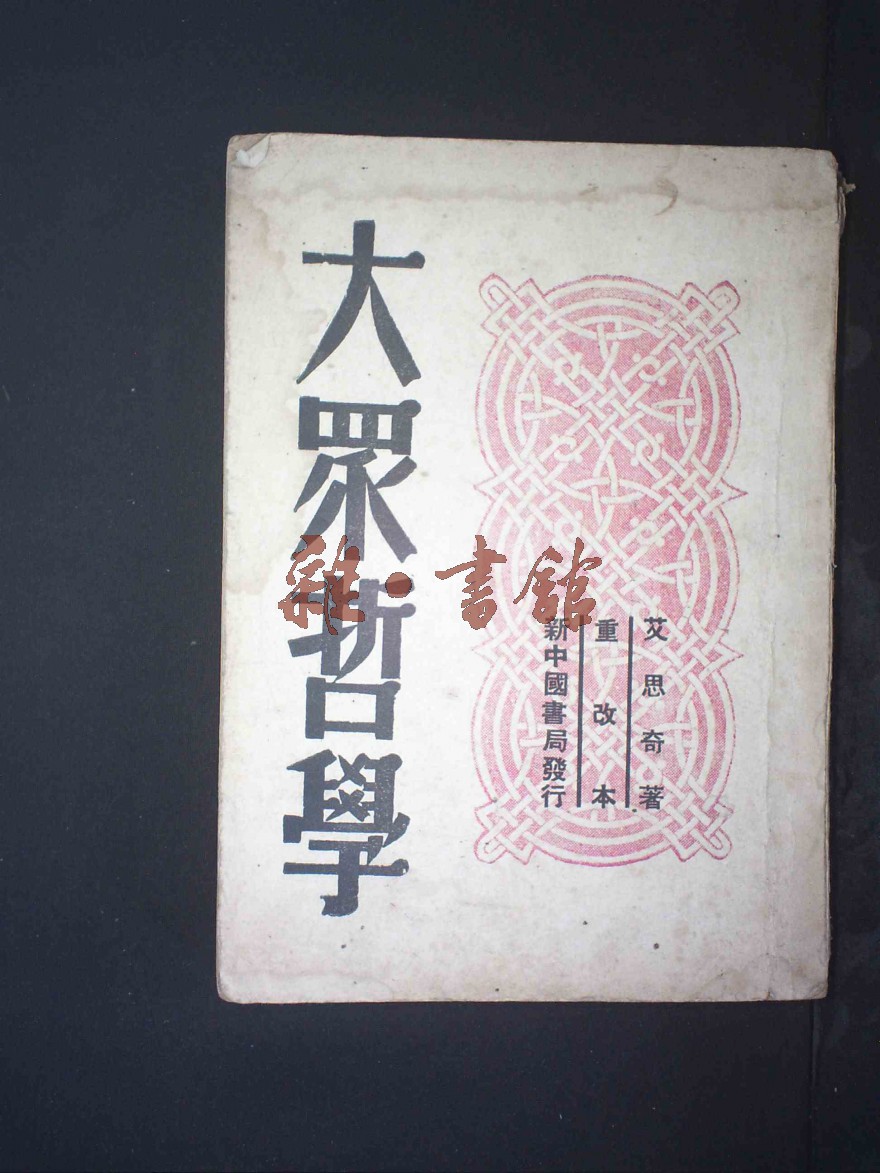 大眾哲學
艾思奇著
重改本
新中國書局發行
雜·書館